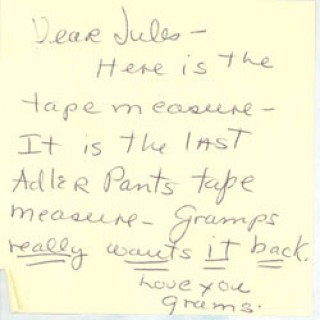 Dear Jules -
Here is the
tape measure -
It is the last
Adler Pants tape
measure - Gramps
really wants it back.
Love you
grams.